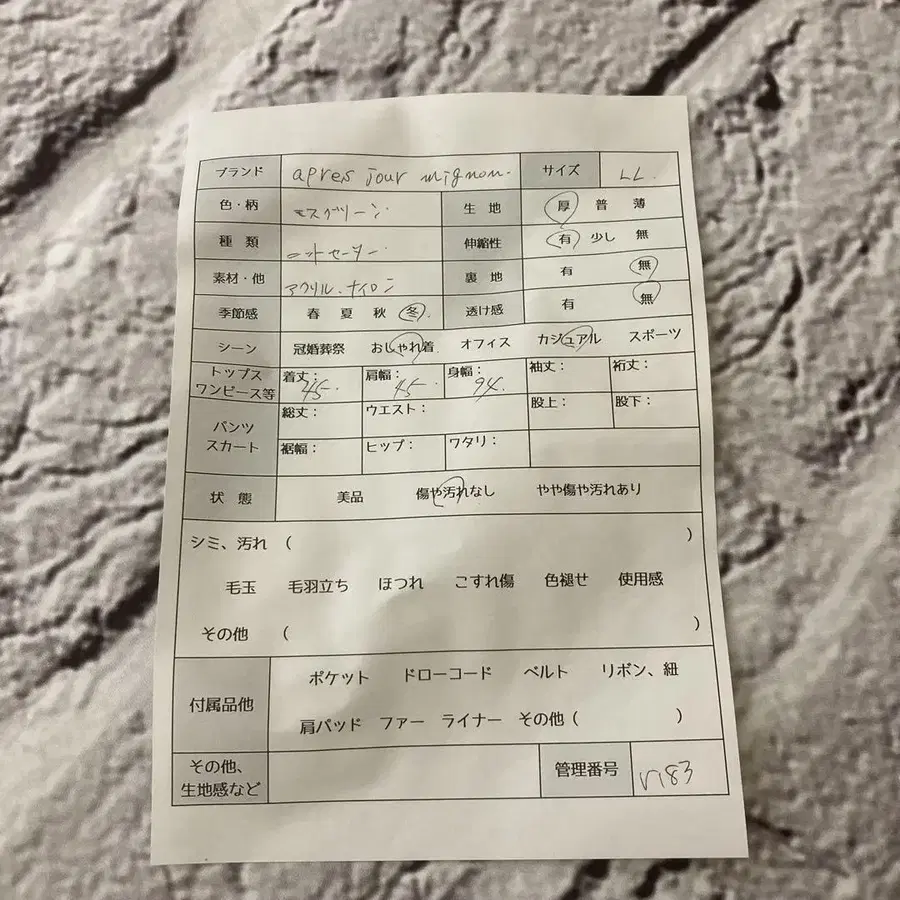 ブランド apres jour mignon. サイズ LL.
色・柄 モスグリーン 生地 厚 普 薄
種類 ニットセーター 伸縮性 有 少し 無
素材・他 アクリル、ナイロン 裏地 有 無
季節感 春 夏 秋 冬 透け感 有 無
シーン 冠婚葬祭 おしゃれ着 オフィス カジュアル スポーツ
トップス ワンピース等 着丈: 45. 肩幅: 45. 身幅: 94. 袖丈: 裄丈:
パンツ スカート 総丈: ウエスト: 股上: 股下:
裾幅: ヒップ: ワタリ:
状態 美品 傷や汚れなし やや傷や汚れあり
シミ、汚れ ( )
毛玉 毛羽立ち ほつれ こすれ傷 色褪せ 使用感
その他 ( )
付属品他 ポケット ドローコード ベルト リボン、紐
肩パッド ファー ライナー その他 ( )
その他、生地感など 管理番号 V183